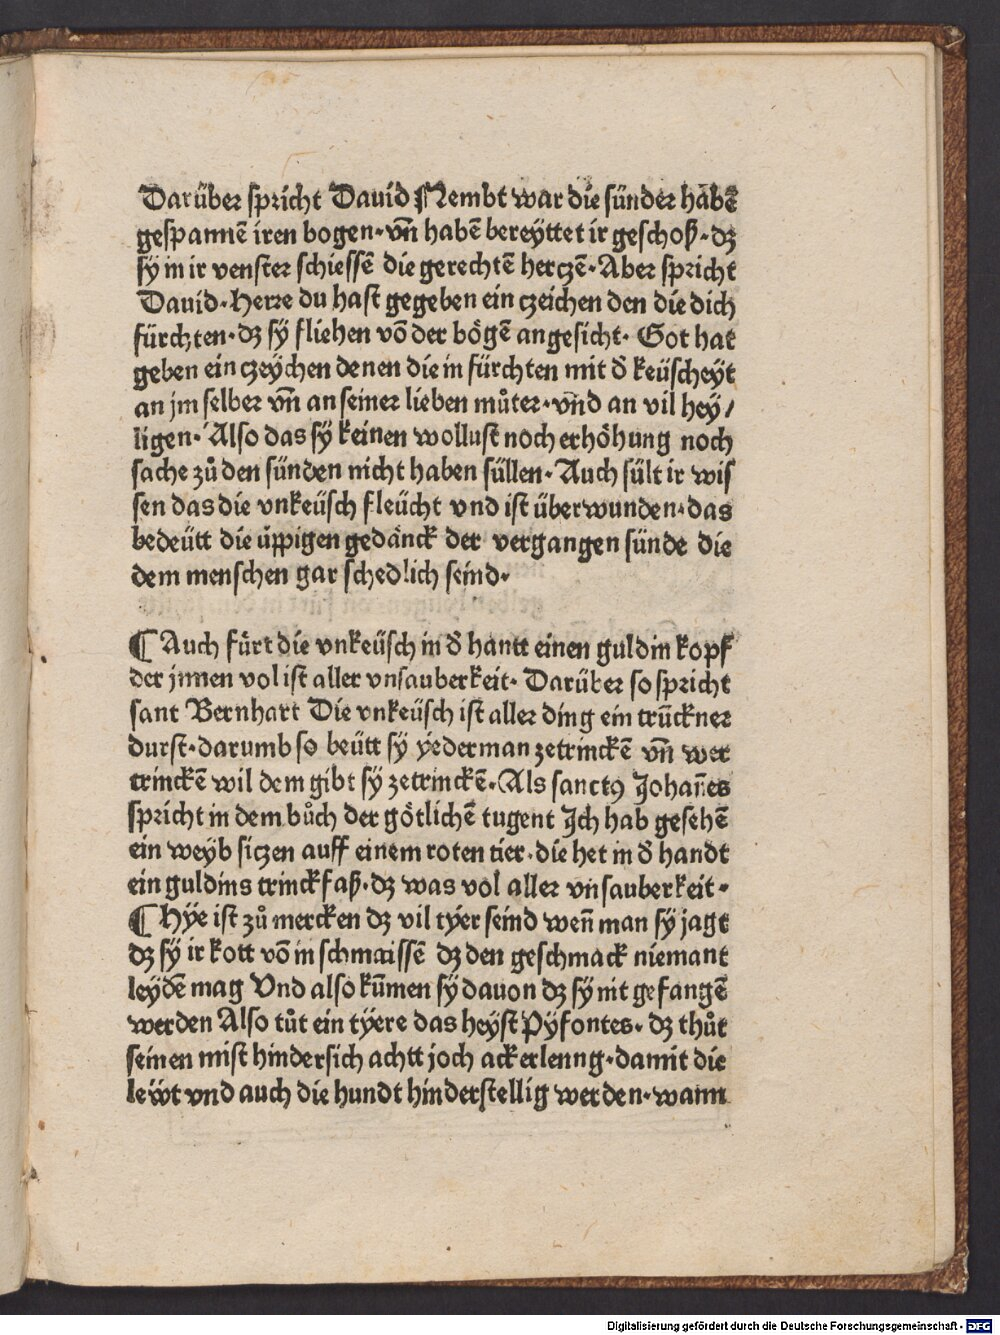 Darüber spricht Dauid Nembt war die sünder habē
gespannē iren bogen·vn̄ habē bereÿttet ir geschoß·dꝫ
sÿ in ir venster schiessē die gerechtē herczē·Aber spricht
Dauid·Herre du hast gegeben ein czeichen den die dich
fürchten·dꝫ sÿ fliehen vō der bögē angesicht· Got hat
geben ein czeÿchen denen die in fürchten mit d̄ keüscheÿt
an jm selber vn̄ an seiner lieben můter·vn̄d an vil hey/
ligen· Also das sÿ keinen wollust noch erhöhung noch
sache zů den sünden nicht haben süllen·Auch sült ir wis
sen das die vnkeüsch fleücht vnd ist überwunden·das
bedeütt die üppigen gedänck der vergangen sünde die
dem menschen gar schedlich seind·
¶ Auch fürt die vnkeüsch in d̄ hantt einen guldin kopf
der jnnen vol ist aller vnsauberkeit· Darüber so spricht
sant Bernhart Die vnkeüsch ist aller ding ein trückner
durst·darumb so beütt sÿ ÿederman zetrinckē vn̄ wer
trinckē wil dem gibt sÿ zetrinckē·Als sanctꝰ Johan̄es
spricht in dem bůch der götlichē tugent Jch hab gesehē
ein weyb siczen auff einem roten tier·die het in d̄ handt
ein guldins trinckfaß·dꝫ was vol aller vnsauberkeit·
¶ Hÿe ist zů mercken dꝫ vil tÿer seind wen̄ man sÿ jagt
dꝫ sÿ ir kott vō in schmaissē dꝫ den geschmack niemant
leÿdē mag Vnd also kūmen sÿ dauon dꝫ sÿ nit gefangē
werden Also tůt ein tÿere das heÿst Pÿfontes·dꝫ thůt
seinen mist hindersich achtt joch ackerlenng·damit die
lewt vnd auch die hundt hinderstellig werden·wann
Digitalisierung gefördert durch die Deutsche Forschungsgemeinschaft - DFG